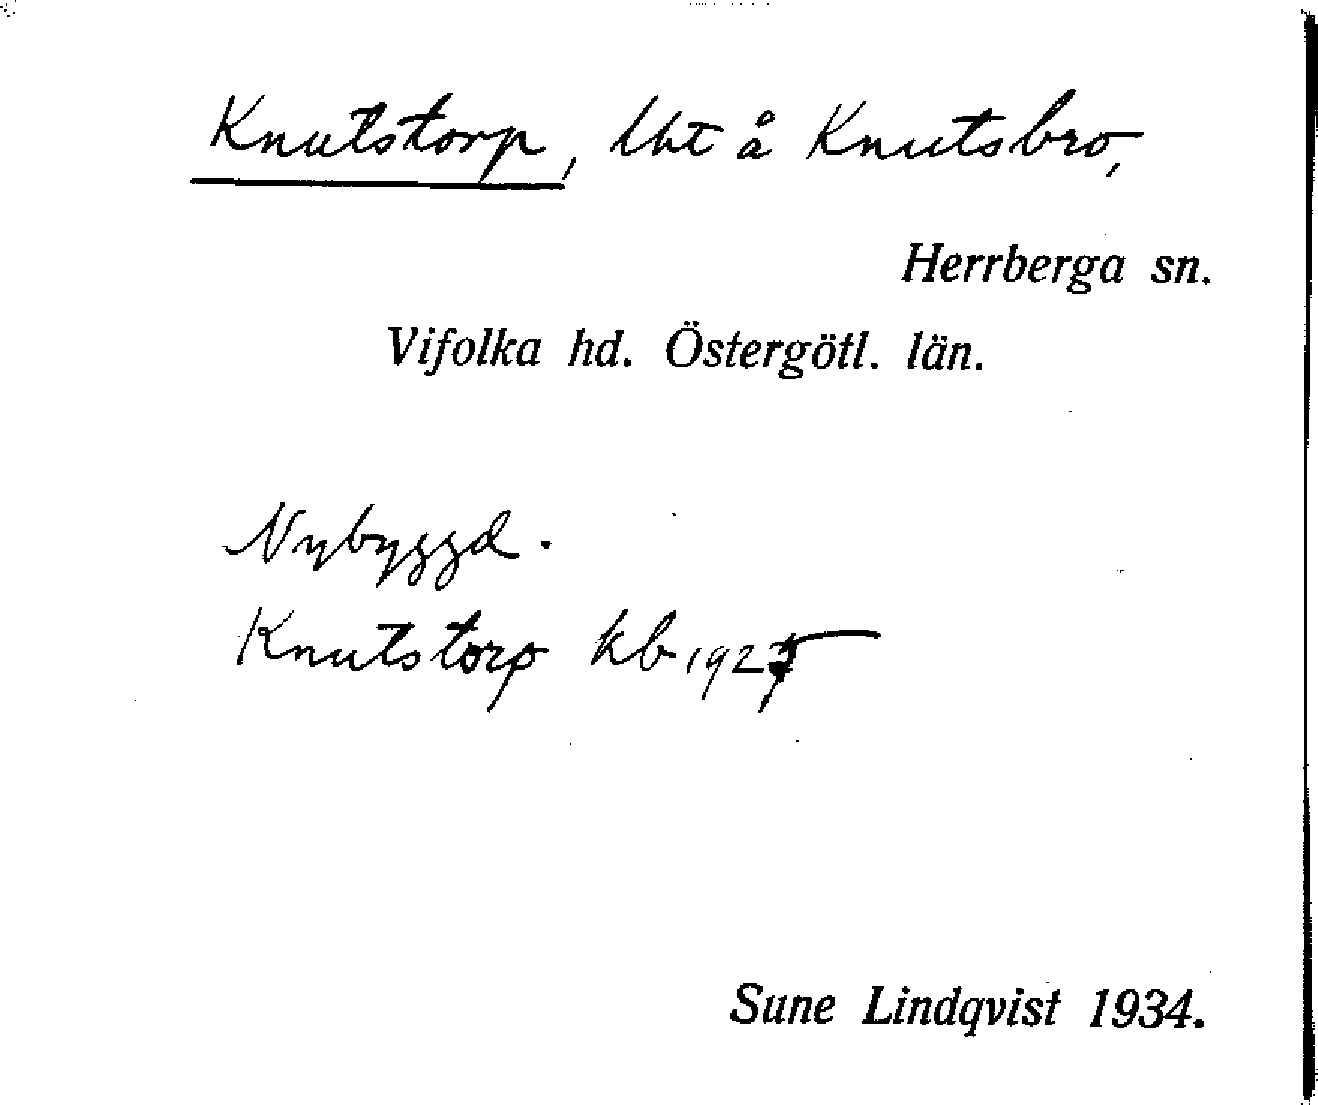 Knutstorp, lht å Knutsbro,
Herrberga sn.
Vifolka hd. Östergötl. län.
Nybyggd.
Knutstorp kb 1925
Sune Lindqvist 1934.